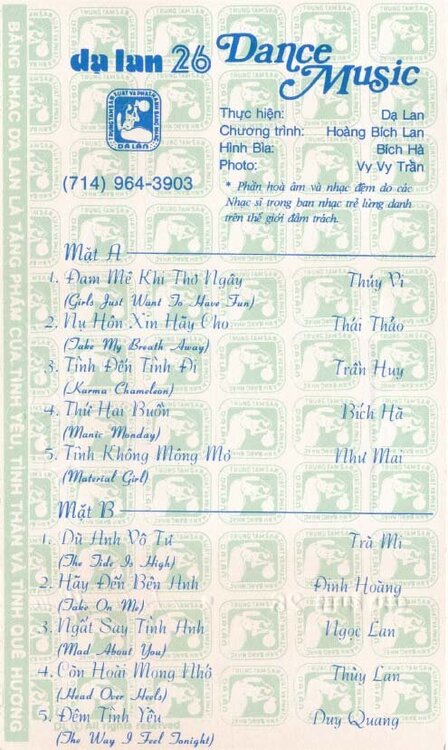 dạ lan 26 Dance Music
TRUNG TÂM SẢN XUẤT VÀ PHÁT HÀNH BĂNG NHẠC
DẠ LAN
(714) 964-3903
Thực hiện: Dạ Lan
Chương trình: Hoàng Bích Lan
Hình Bìa: Bích Hà
Photo: Vy Vy Trần
* Phần hoà âm và nhạc đệm do các
Nhạc sĩ trong ban nhạc trẻ lừng danh
trên thế giới đảm trách.
Mặt A
1. Đam Mê Khi Thơ Ngây Thúy Vi
(Girls Just Want To Have Fun)
2. Nụ Hôn Xin Hãy Cho Thái Thảo
(Take My Breath Away)
3. Tình Đến Tình Đi Trần Huy
(Karma Chameleon)
4. Thứ Hai Buồn Bích Hà
(Manic Monday)
5. Tình Không Mộng Mơ Như Mai
(Material Girl)
Mặt B
1. Dù Anh Vô Tư Trà Mi
(The Tide Is High)
2. Hãy Đến Bên Anh Đình Hoàng
(Take On Me)
3. Ngất Say Tình Anh Ngọc Lan
(Mad About You)
4. Còn Hoài Mong Nhớ Thùy Lan
(Head Over Heels)
5. Đêm Tình Yêu Duy Quang
(The Way I Feel Tonight)
BĂNG NHẠC DẠ LAN LÃNG PHẤT CẢ TÌNH YÊU TÌNH THÂN TÌNH QUÊ HƯƠNG